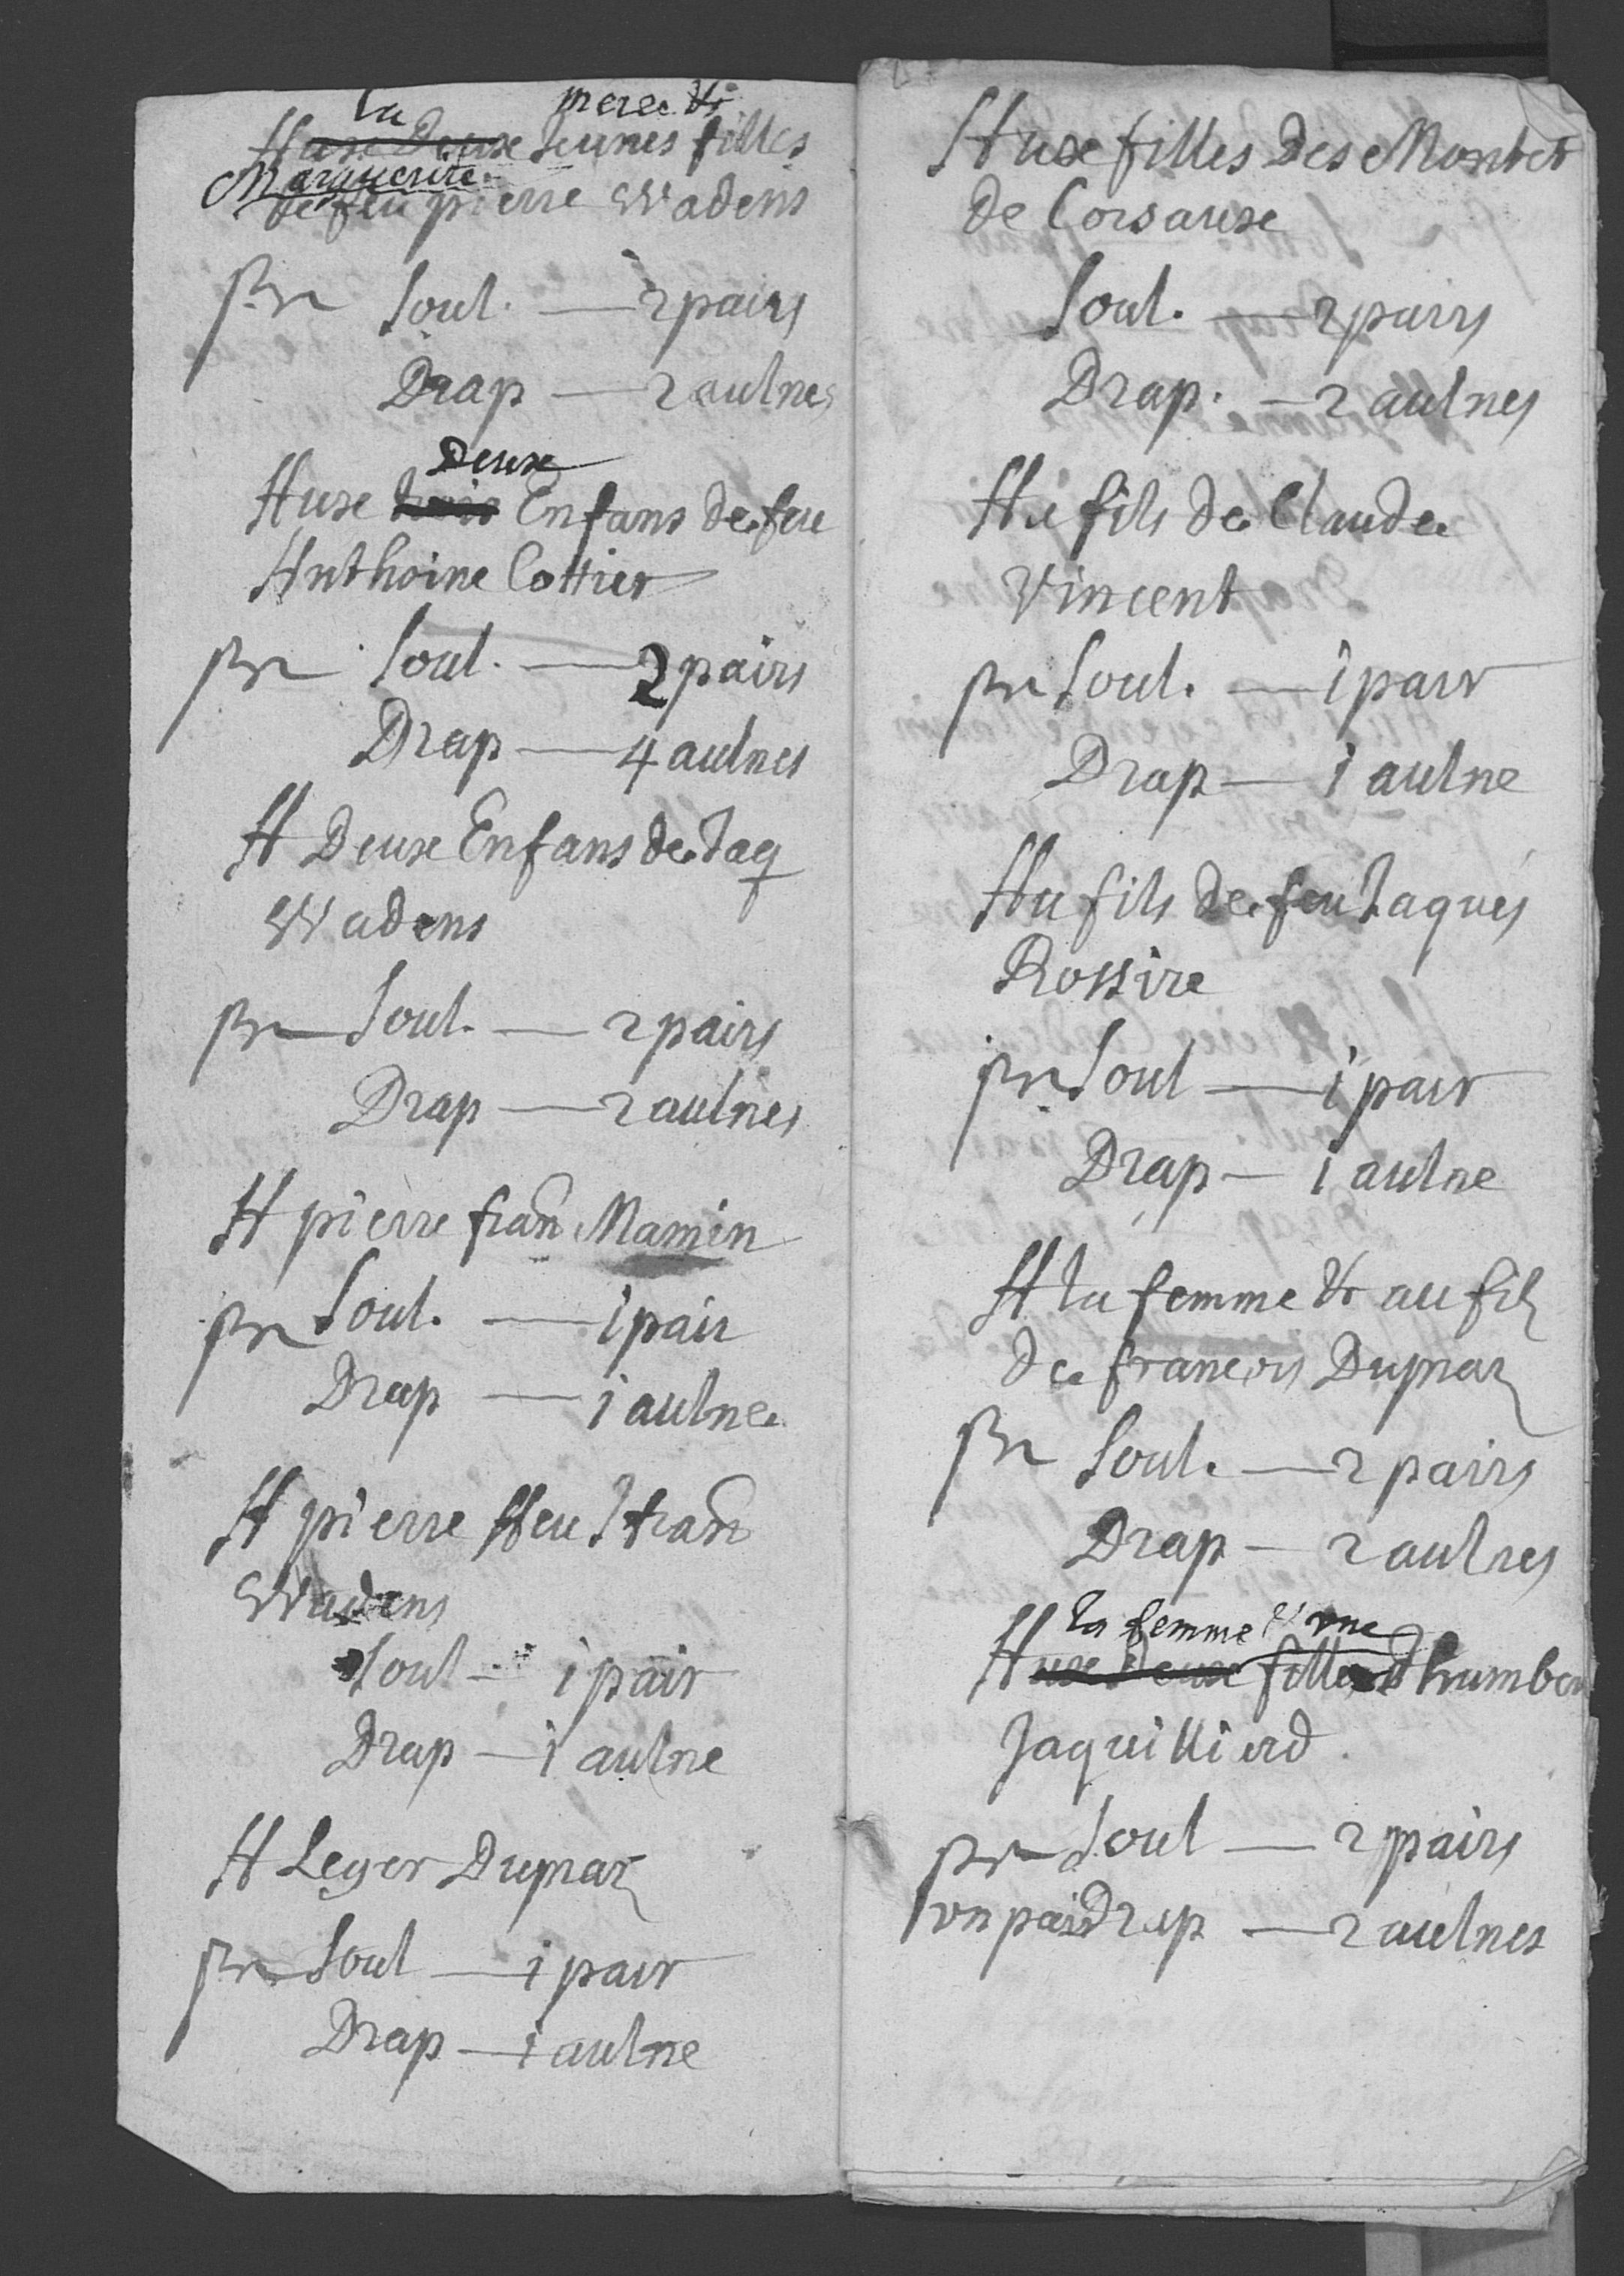 la mere &
Aux Deux Jeunes filles
Marguerite
de feu pierre Wadens
pr Soul. — 2 pairs
Drap — 2 aulnes
Deux
Aux trois Enfans de feu
Anthoine Cottier
pr Soul. — 2 pairs
Drap — 4 aulnes
A Deux Enfans de Jaq
Wadens
pr Soul. — 2 pairs
Drap — 2 aulnes
A pierre fran Mamin
pr Soul. — 1 pair
Drap — 1 aulne
A pierre ffeu
Wadens
Soul — 1 pair
Drap — 1 aulne
A Leger Dupraz
pr Soul — 1 pair
Drap — 1 aulne
Aux filles des Montet
de Corsaux
Soul. — 2 pairs
Drap. — 2 aulnes
Au fils de Claude
Vincent
pr Soul. — 1 pair
Drap — 1 aulne
Au fils de feu Jaques
Rossire
pr Soul — 1 pair
Drap — 1 aulne
A la femme & au fils
de francois Dupraz
pr Soul. — 2 pairs
Drap — 2 aulnes
la femme & une
Aux Deux filles d humber
Jaquillierd
pr Soul — 2 pairs
un pair Drap — 2 aulnes